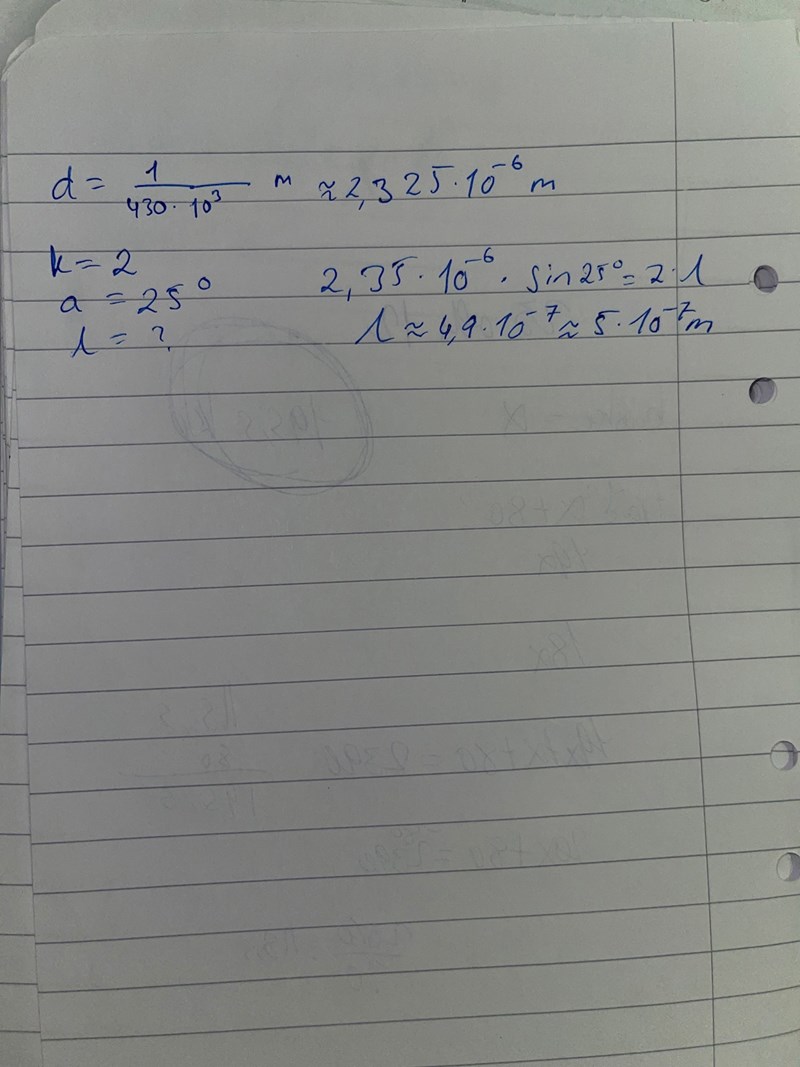 d = 1 / 430 · 10³ m ≈ 2,325 · 10⁻⁶ m
k = 2
a = 25° 2,35 · 10⁻⁶ · sin 25° = 2 · λ
λ = ? λ ≈ 4,9 · 10⁻⁷ ≈ 5 · 10⁻⁷ m